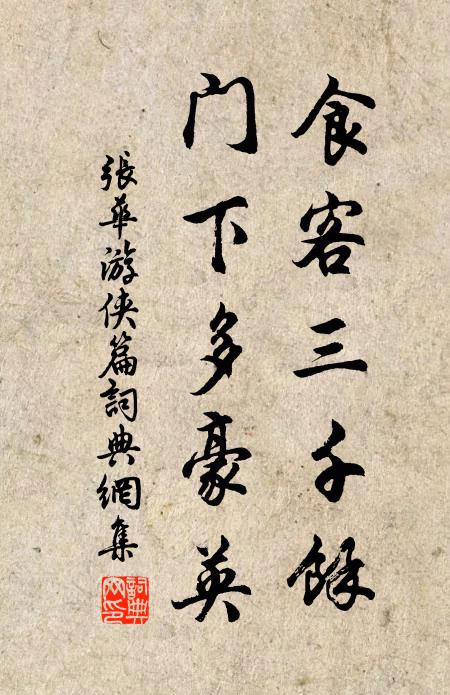 食客三千餘
门下多豪英
張華游侠篇詞典網集
詞典網印